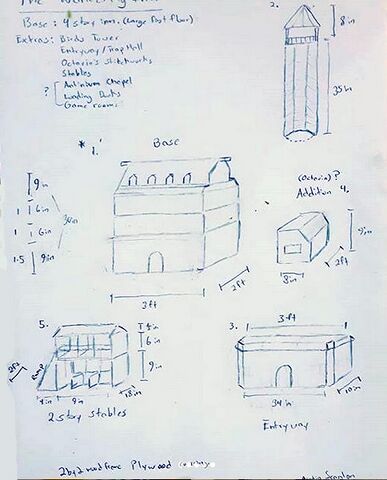 The Wandering Inn
Base: 4 story inn. (Large first floor)
Extras: Birds Tower
Entryway/Trap Hall
Octavia's Stitchworks
Stables
? Antinium Chapel
Game room
2.
8in
35in
* 1.
Base
9in
1 6in
1 6in
1.5 9in
30in
3ft
2ft
(Octavia)?
Addition 4.
9in
8in
2ft
5.
4in
6in
9in
2ft
Ramp
4in 9in 18in
2 story stables
3.
3ft
34in
10in
Entryway
2by2 wood frame Plywood